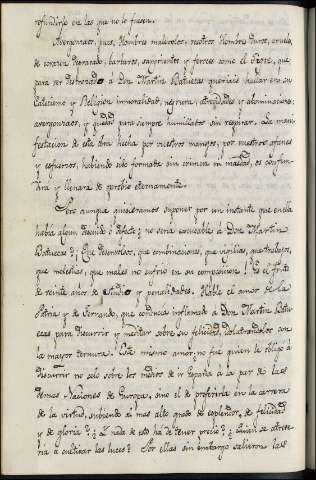 refundirlo en las que no lo fuesen.
Avergonzaos, pues, Hombres malevolos, vosotros Hombres duros, crueles,
de corazon depravado, tartaros, sangrientos y feroces como el Tigre, que
para ver destrozado a Don Martin Batuecas queriais hallar en su
Catecismo y Religion inmoralidad, negrura, atrocidades y abominaciones:
avergonzaos, y quedad para siempre humillados sin respirar. La mani-
festacion de esta obra hecha por vuestros manejos, por vuestros afanes
y esfuerzos, habiendo sido formada sin que en malicia, os confun-
dira y llenara de oprobio eternamente.
Pero aunque quisieramos suponer por un instante que en ella
había algun descuido o defecto ¿no seria escusable a Don Martin
Batuecas? ¡Que desvelos, que combinaciones, que vigilias, que trabajos,
que molestias, que males no sufrio en su composicion! Es el fruto
de veinte años de estudio y penalidades. Hable el amor de la
Patria y de Fernando, que condujo inflamado a Don Martin Batue-
cas para discurrir y meditar sobre su felicidad, idolatrandolos con
la mayor ternura. Este mismo amor, no fue quien le obligo a
discurrir no solo sobre los medios de ir España a la par de las
demas Naciones de Europa, sino el de preferirla en la carrera
de la virtud, subiendo al mas alto grado de esplendor, de felicidad
y de gloria? ¿Y nada de esto ha de tener precio? ¿Quien se atreve-
ria a cultivar las luces? Por ellas sin embargo salieron las